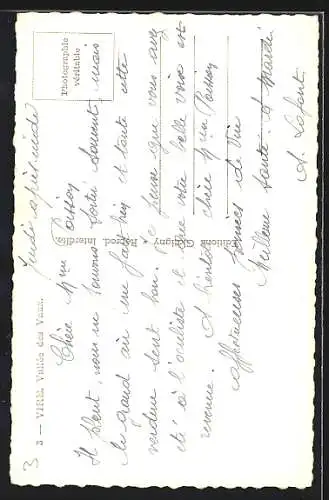 3 — VIRE. Vallée des Vaux.
3
Photographie
véritable
Jeudi après-midi
Chère Mme Poisson
Il pleut, nous ne pouvons sortir souvent, mais
le grand air me fait bien et toute cette
verdure sent bon. Je pense que vous avez
été à l'oculiste et que votre belle voix est
revenue. A bientôt chère Mme Poisson
affectueuses pensées de Vire
Meilleure santé. A Mardi
A. Lafont
Reprod. Interdite.